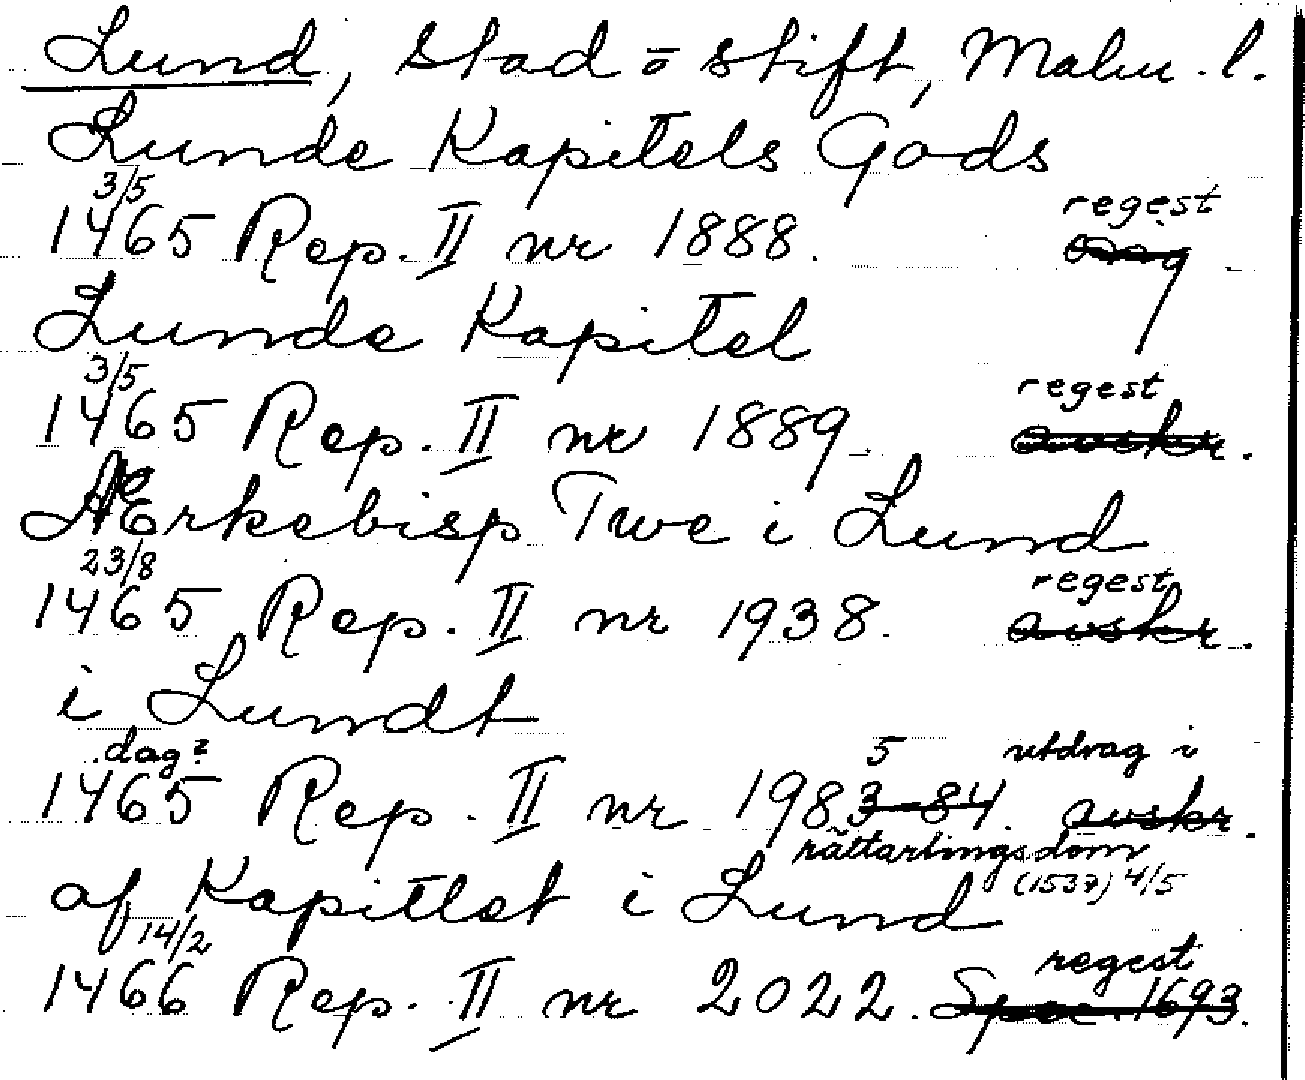 Lund, stad o stift, Malm. l.
Lunde Kapitels Gods
3/5 regest
1465 Rep. II nr 1888. orig
Lunde Kapitel
3/5 regest
1465 Rep. II nr 1889 avskr.
Ærkebisp Twe i Lund
23/8 regest
1465 Rep. II nr 1938. avskr.
i Lundt
dag? 5 utdrag i
1465 Rep. II nr 1983-84. avskr.
rättartingsdom
af Kapitlet i Lund (1537) 4/5
14/2 regest
1466 Rep. II nr 2022. Spec. 1693.